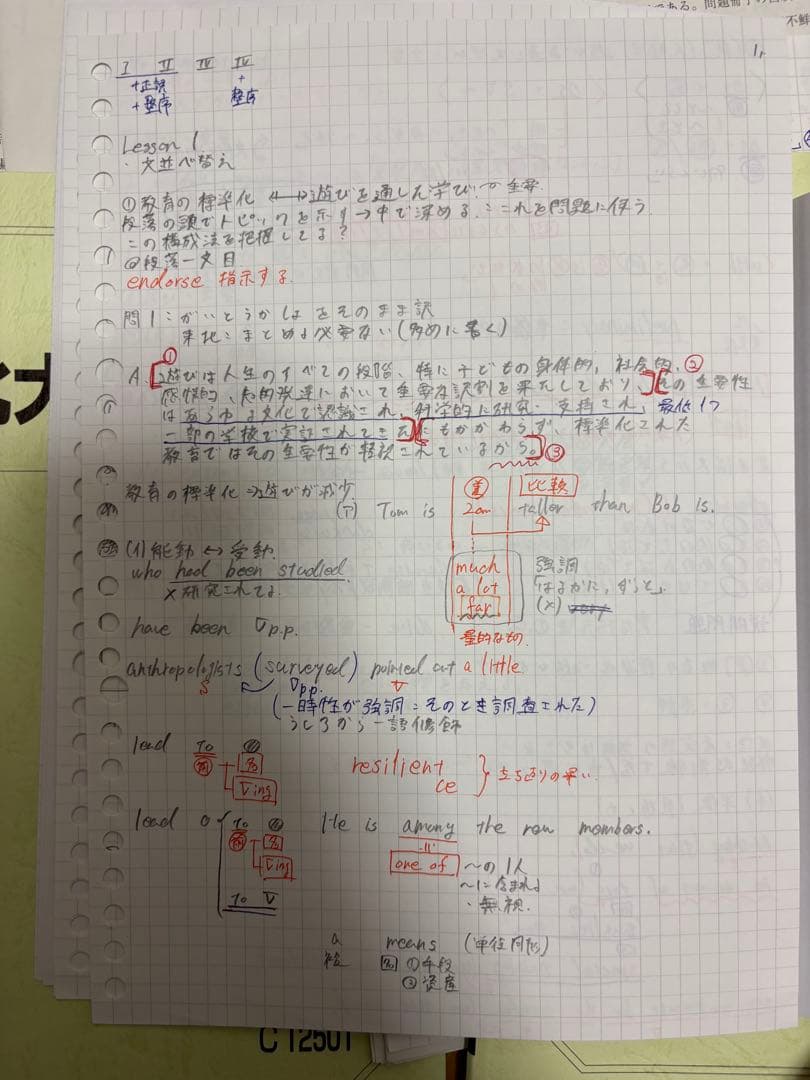 である。問題冊子の
不鮮
1,
I II III IV
+正誤 +
+整序 整序
Lesson 1
・文並べ替え
①教育の標準化 ⟷ 遊びを通した学びが重要.
段落の頭でトピックを示す→中で深める ∴これを問題に使う
この構成法を把握してる?
@段落一文目
endorse 指示する
問1:がいとうかしょをそのまま訳
まとめる必要ない(多めに書く)
①
A.[遊びは人生のすべての段階、特に子どもの身体的,社会的, ②
感情的,知的発達において重要な役割を果たしており、][その重要性
はあらゆる文化で認識され,科学的に研究・支持され,最低1つ
一部の学校で実証されてきた][にもかかわらず、標準化された
教育ではその重要性が軽視されているから。]③
教育の標準化⇒遊びが減少.
差 比較
(ア) Tom is 2cm taller than Bob is.
(イ)能動 ↔ 受動.
who had been studied
×研究されてる
much
a lot
far
強調
「はるかに,ずっと」
(×) very
量的なもの
have been Vp.p.
anthropologists (surveyed) pointed out a little.
S Vpp. V
(一時性が強調:そのとき調査された)
うしろから一語修飾
lead To
前 名
Ving
resilient
ce
立ち直りの早い
lead O To
前 名
Ving
To V
He is among the row members.
"
one of ～の1人
～に含まれる
・無視.
a means (単複同形)
複 名 ①手段
②資産
C 12501